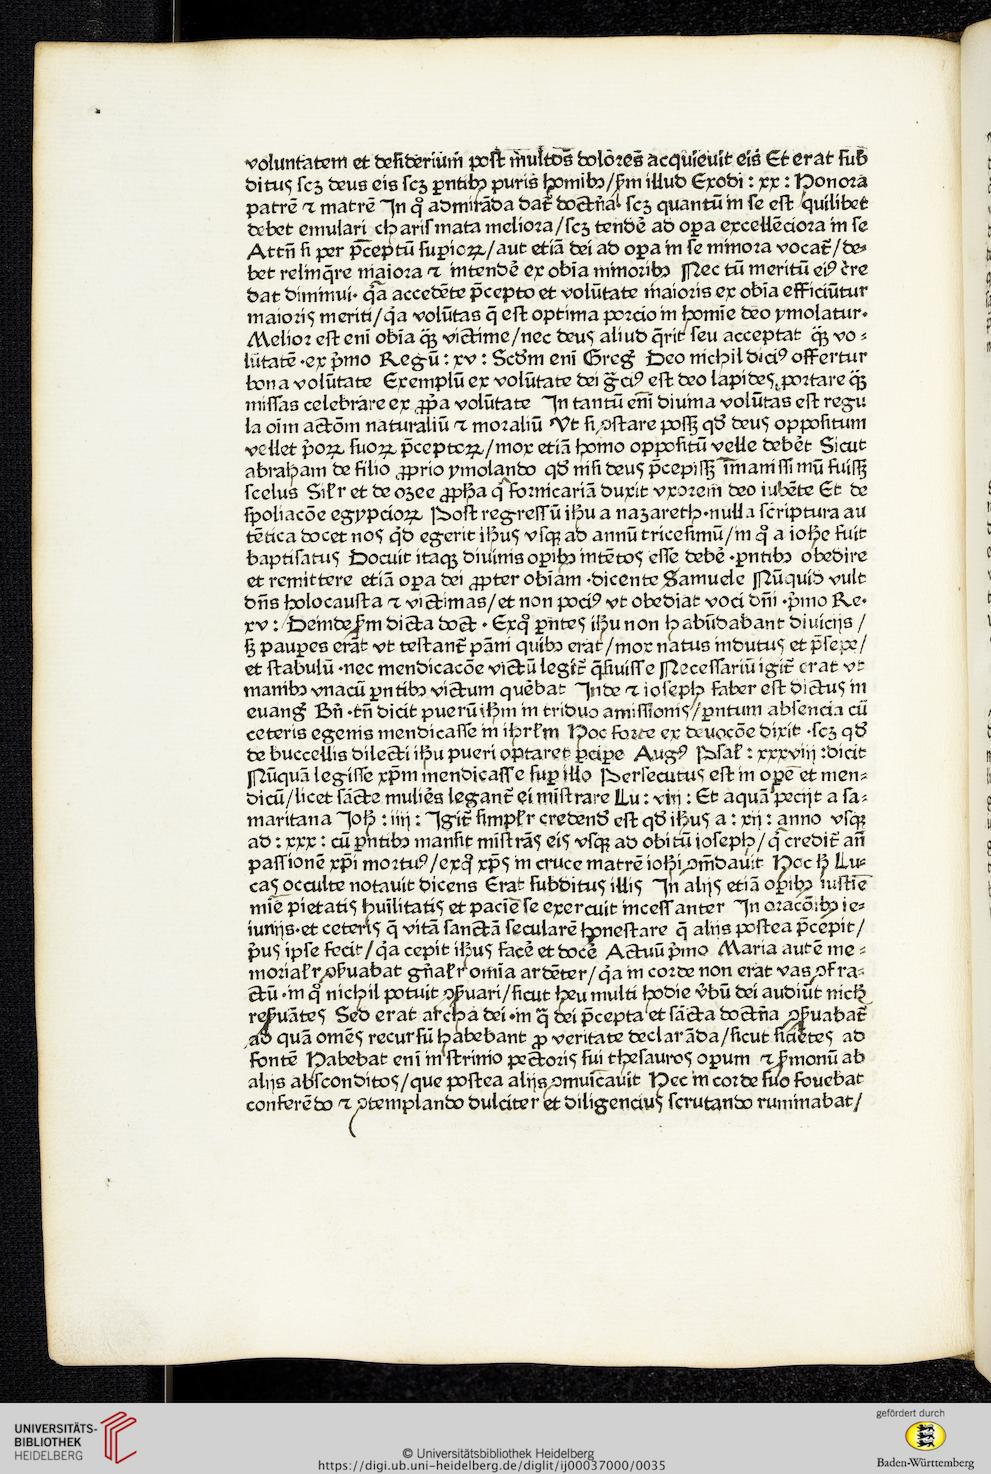 voluntatem et desiderium̄ post m̄ultos̄ dolōres̄ acquieuit eis̄ Et erat sub̄
ditus scꝫ deus eis scꝫ pn̄tibꝫ puris homibꝫ/ẜm illud Exodi : xx : Honora
patrē ⁊ matrē In qͦ admirāda dat̄ doctn̄a scꝫ quantū in se est /quilibet
debet emulari charismata meliora/scꝫ tendē ad oꝑa excellēciora in se
Attn̄ si per p̄ceptū suꝑioꝝ/aut etiā dei ad oꝑa in se minora vocat̄/de-
bet relinq̄re maiora ⁊ intendē ex obīa minoribꝫ Nec tū meritū eiꝰ c̄re
dat diminui· q̄a accedēte p̄cepto et volūtate maioris ex obīa efficiūtur
maioris meriti/q̄a volūtas q̄ est optima porcio in homīe deo ymolatur·
Melior est enī obīa qꝫ̄ victime/nec deus aliud q̄rit seu acceptat qꝫ̄ vo-
lūtatē ·ex p̄mo Regū : xv : Scd̄m enī Greḡ Deo nichil diciꝰ offertur
bona volūtate Exemplū ex volūtate dei g̃ciꝰ est deo lapides portare qꝫ̄
missas celebrāre ex ꝓp̄a volūtate In tantū enī diuina volūtas est regu
la oīm actōm naturaliū ⁊ moraliū Vt si ꝯstare possꝫ qd̄ deus oppositum
vellet p̄oꝝ suoꝝ p̄ceptoꝝ/mox etiā homo oppositū velle debēt Sicut
abraham de filio ꝓprio ymolando qd̄ nisi deus p̄cepissꝫ īmanissimū fuissꝫ
scelus Sil̄r et de ozee ꝓph̄a q̄ fornicariā duxit vxorem deo iubēte Et de
spoliacōe egypcioꝝ Post regressū ih̄u a nazareth·nulla scriptura au
tētica docet nos qd̄ egerit ih̄us vsqꝫ ad annū tricesimū/in qͦ a ioh̄e fuit
baptisatus Docuit itaqꝫ diuinis oꝑibꝫ intētos esse debē ·pn̄tibꝫ obedire
et remittere etiā oꝑa dei ꝓpter obīam ·dicente Samuele Nūquid vult
dn̄s holocausta ⁊ victimas/et non pociꝰ vt obediat voci dn̄i ·p̄mo Re·
xv : Deinde ẜm dicta doct̄ · Exqͦ pn̄tes ih̄u non habūdabant diuicijs /
sꝫ paupes erāt vt testant̄ pāni quibꝫ erat/mox natus indutus et p̄sepe/
et stabulū ·nec mendicacōe victū legit̄ q̄siuisse Necessariū igit̄ erat vt
manibꝫ vnacū pn̄tibꝫ victum quēbat Inde ⁊ ioseph faber est dictus in
euanḡ Bn̄ ·tn̄ dicit puerū ih̄m in triduo amissionis/pn̄tum absencia cū
ceteris egenis mendicasse in ihrl̄m Hoc forte ex deuocōe dixit ·scꝫ qd̄
de buccellis dilecti ih̄u pueri optaret pcipe Augꝰ Psal̄ : xxxviij :dicit
Nūquā legisse xp̄m mendicasse suꝑ illo Persecutus est in opē et men-
dicū/licet sācte muliēs legant̄ ei mīstrare Lu : viij : Et aquā peciit a sa-
maritana Joh̄ : iiij : Igit̄ simpl̄r credend̄ est qd̄ ih̄us a : xij : anno vsqꝫ
ad : xxx : cū pn̄tibꝫ mansit mīstrās eis vsqꝫ ad obitū ioseph/q̄ credit̄ an̄
passionē xp̄i mortuꝰ/exqͦ xp̄s in cruce matrē ioh̄i ꝯm̄dauit Hoc sꝫ Lu-
cas occulte notauit dicens Erat subditus illis In alijs etiā oꝑibꝫ iusticīe
mīe pietatis huīlitatis et paciēcie se exercuit incessanter In oracōibꝫ ie-
iunijs·et ceteris q̄ vitā sanctā secularē honestare q̄ alijs postea p̄cepit/
p̄us ipse fecit/q̄a cepit ih̄us facē et docē Actuū p̄mo Maria autē me-
morial̄r ꝯẜuabat gn̄al̄r omīa ardēter/q̄a in corde non erat vas ꝯfra-
ctū ·in qͦ nichil potuit ꝯẜuari/sicut heu multi hodie v̄bū dei audiūt nich̄
reẜuātes Sed erat archa dei ·in q̄ dei p̄cepta et sācta doctn̄a ꝯẜuabat̄
ad quā omēs recursū habebant ꝓ veritate declarāda/sicut sicie̅tes ad
fontē Habebat enī in scrinio pectoris sui thesauros oꝑum ⁊ ẜmonū ab
alijs absconditos/que postea alijs ꝯmuīcauit Hec in corde suo fouebat
conferēdo ⁊ ꝯtemplando dulciter et diligencius scrutando ruminabat/
UNIVERSITÄTS-
BIBLIOTHEK
HEIDELBERG
© Universitätsbibliothek Heidelberg
https://digi.ub.uni-heidelberg.de/diglit/ij00037000/0035
gefördert durch
Baden-Württemberg